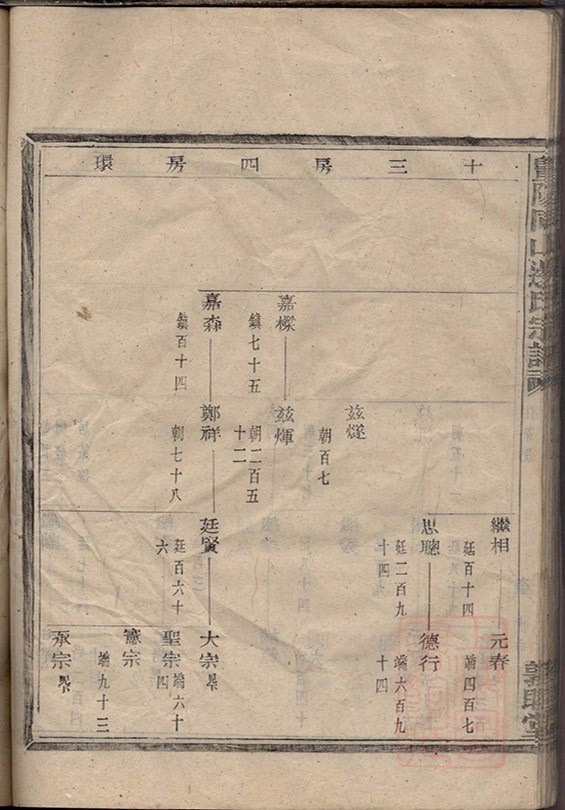 暨陽同山邊氏宗譜
敦睦堂
十三房四房環
繼相
廷百十四
元春
端四百七
思聰
廷二百九十四
德行
端六百九十四
兹燧
朝百七
嘉樑
鎮七十五
兹煇
朝二百五十二
嘉森
鎮百十四
鄭祥
朝七十八
廷賢
廷百六十六
大宗
聖宗
端六十四
憲宗
端九十三
承宗